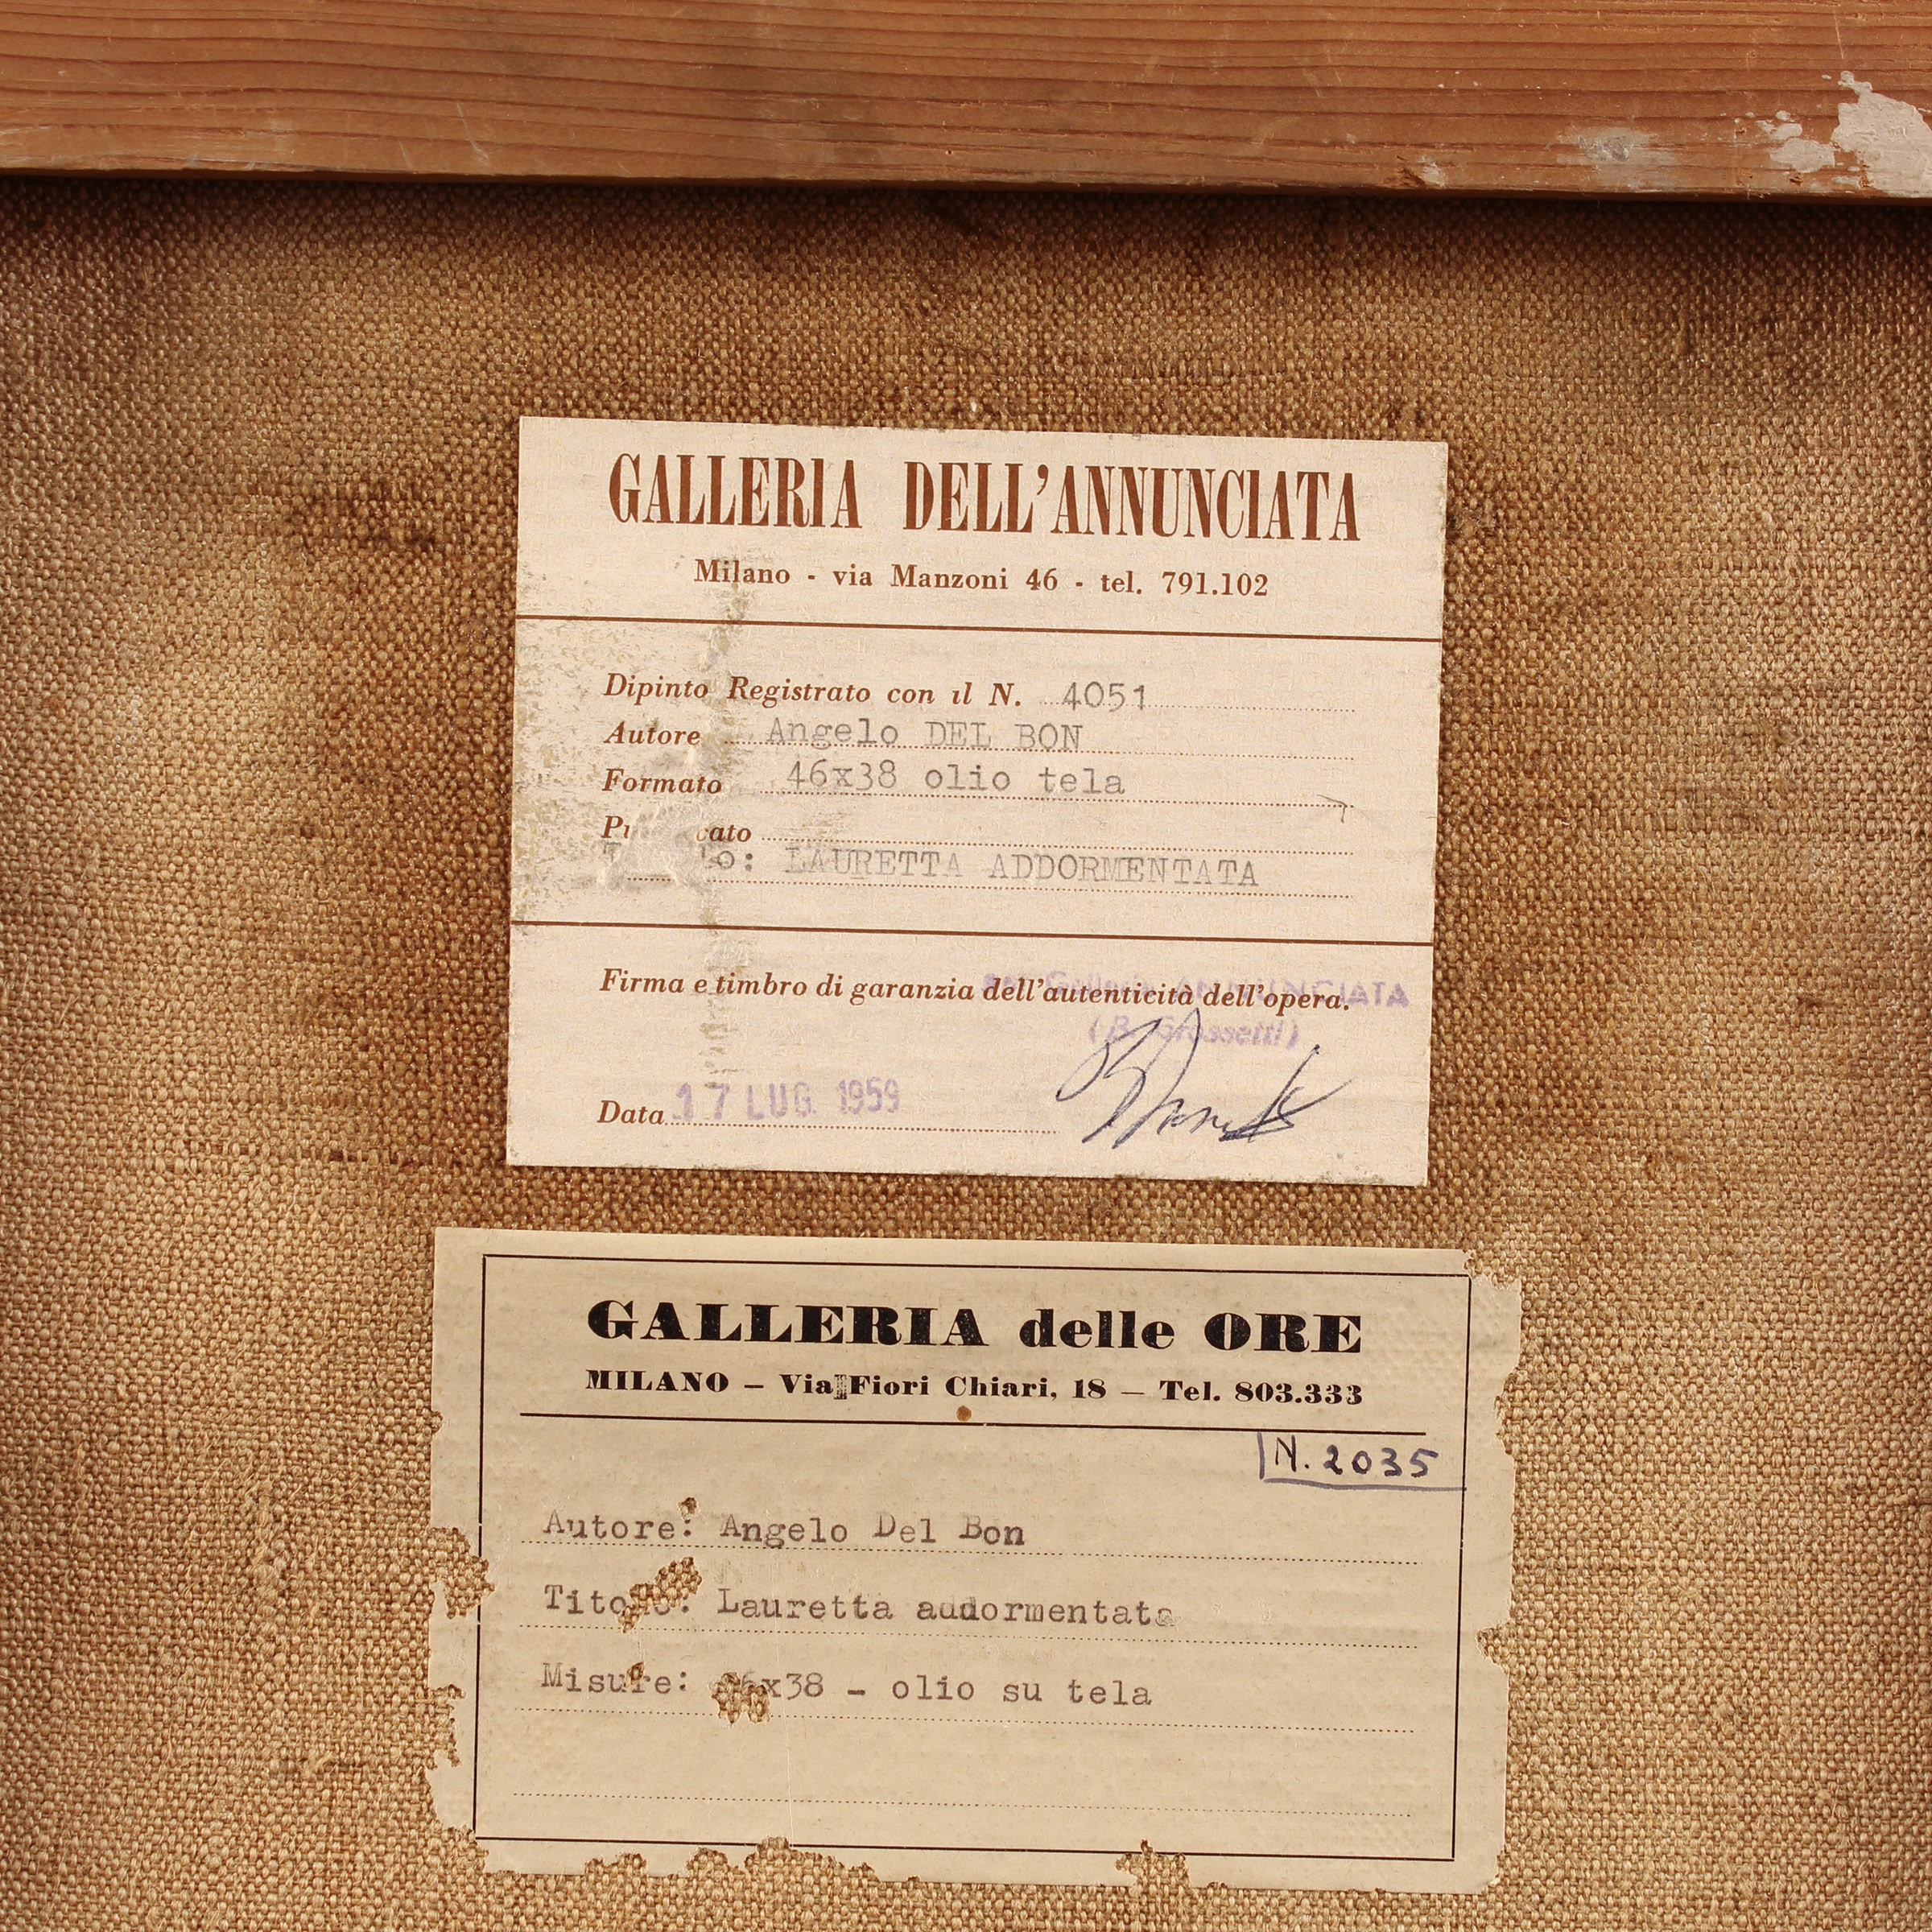 GALLERIA DELL'ANNUNCIATA
Milano - via Manzoni 46 - tel. 791.102
Dipinto Registrato con il N. 4051
Autore Angelo DEL BON
Formato 46x38 olio tela
LAURETTA ADDORMENTATA
Firma e timbro di garanzia dell'autenticità dell'opera.
Galleria ANNUNCIATA
(B. Grossetti)
Data 17 LUG. 1959
GALLERIA delle ORE
MILANO – Via Fiori Chiari, 18 – Tel. 803.333
N. 2035
Autore: Angelo Del Bon
Titolo: Lauretta addormentata
Misure: 46x38 - olio su tela